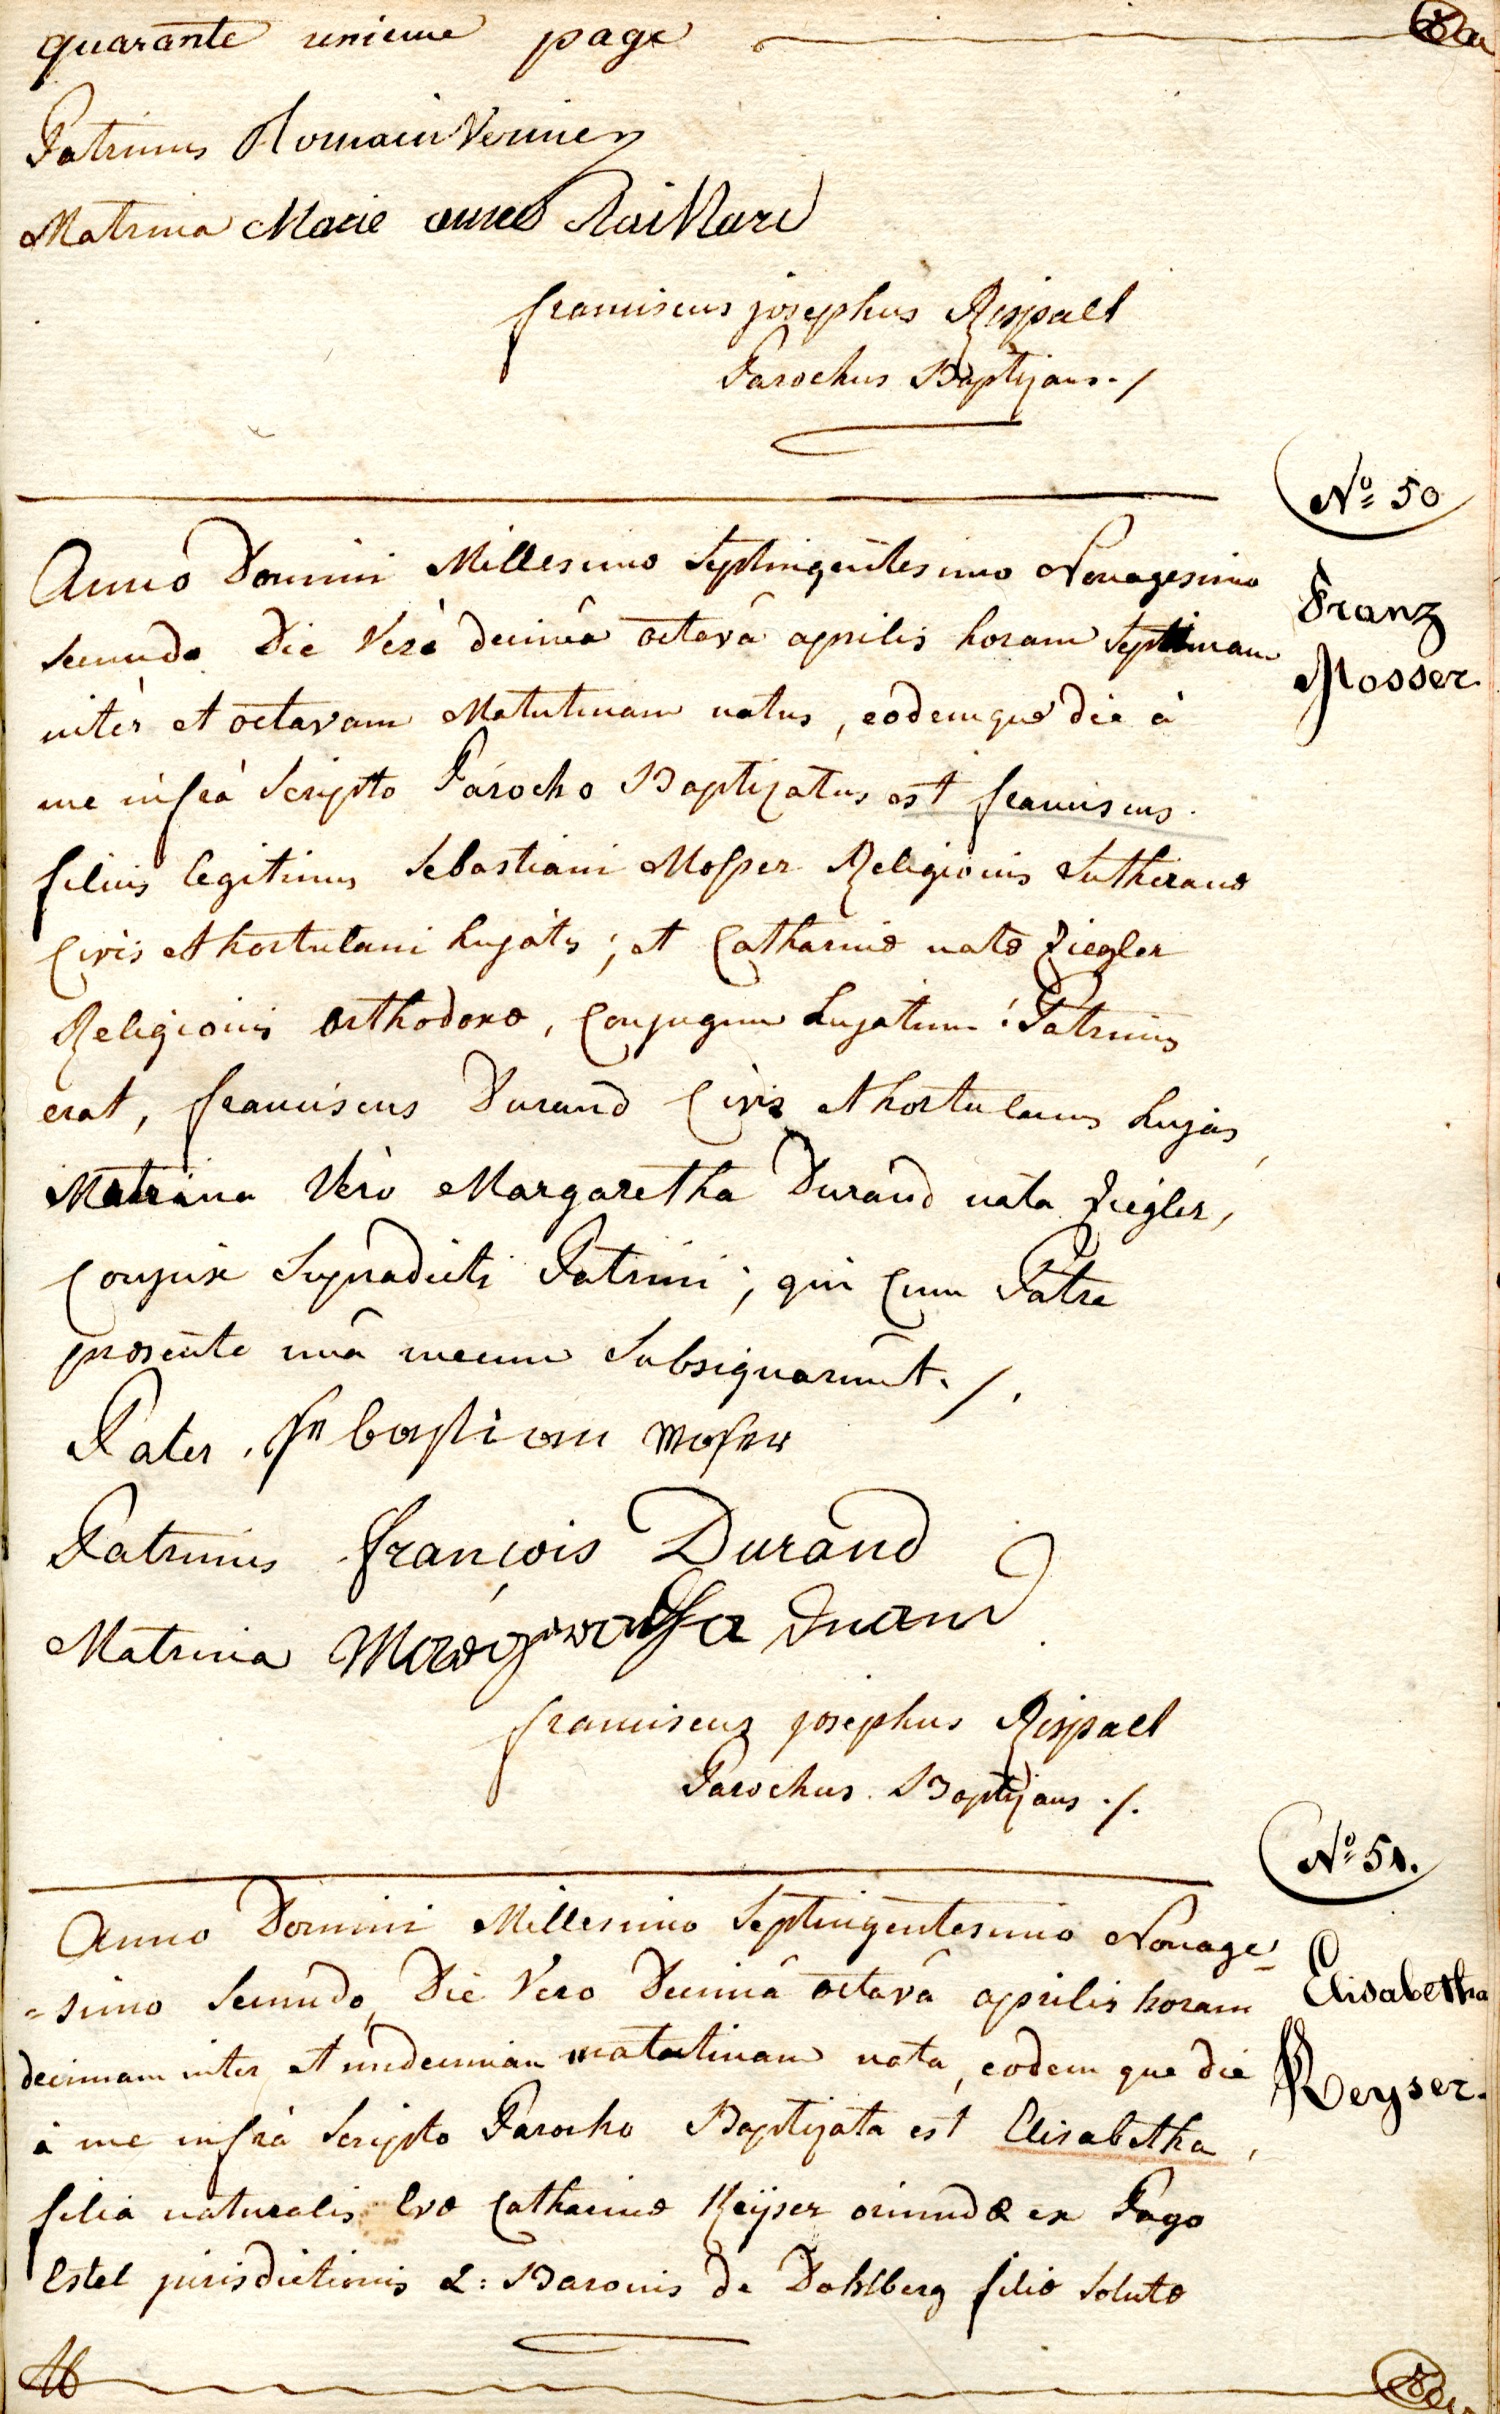 quarante unieme page
Patrinus Romain Vernier
Matrina Marie anne Raillard
franciscus josephus Rispall
Parochus Baptizans ./
Nº 50
Franz
Mosser.
Anno Domini Millesimo Septingentesimo Nonagesimo
secundo Die Verò decimâ octavâ aprilis horam septimam
intèr et octavam Matutinam natus, eodemque die à
me infrà Scripto Parocho Baptizatus est franciscus.
filius legitimus Sebastiani Mosser Religionis Lutheranæ
Civis et hortulani hujatis; et Catharinæ natæ Ziegler
Religionis orthodoxæ, Conjugum hujatium: Patrinus
erat, franciscus Durand Civis et hortulanus hujas,
Matrina Verò Margaretha Durand nata Ziegler,
Conjux Supradicti Patrini; qui Cum Patre
præsente unâ mecum Subsignarunt. /.
Pater. sebastian moser
Patrinus françois Durand
Matrina Durand
franciscus josephus Rispall
Parochus Baptizans ./.
Nº 51.
Elisabetha
Keyser.
Anno Domini Millesimo Septingentesimo Nonage=
=simo Secundo, Die Vero Decimâ octavâ aprilis horam
decimam inter et undecimam matutinam nata, eodem que die
à me infrà Scripto Parocho Baptizata est Elisabetha,
filia naturalis Evæ Catharinæ Keÿser oriundæ ex Pago
Estel jurisdictionis L: Baronis de Dahlberg filiæ Solutæ